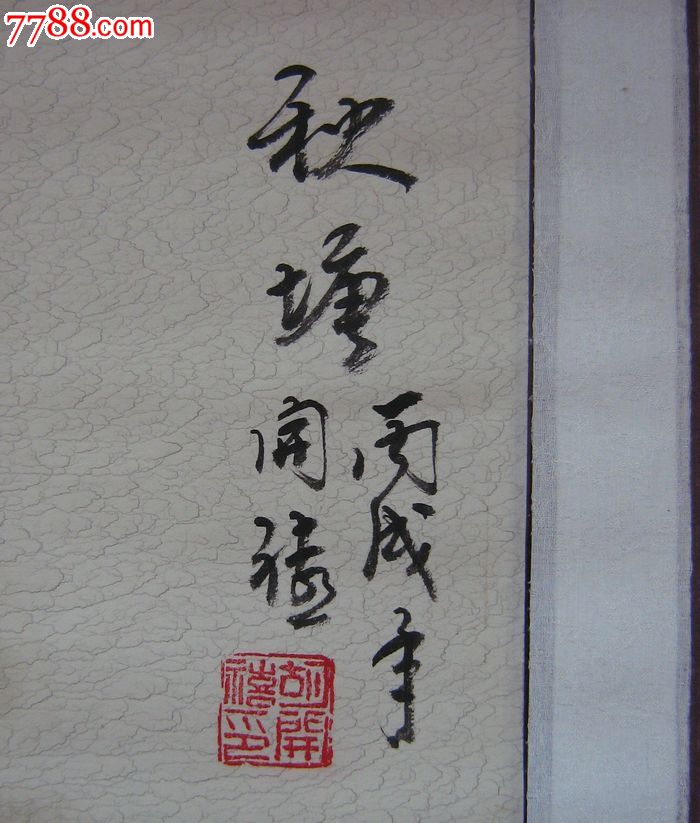 7788.com
秋塘
丙戌年
開禧
胡開
禧印